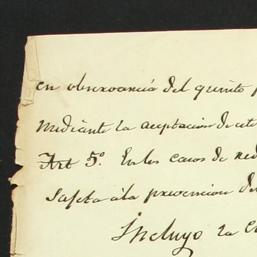 en observancia del quinto
Mediante la aceptacion de
Art 5º. En los casos de
Sujeta á la prevencion
Incluyo la